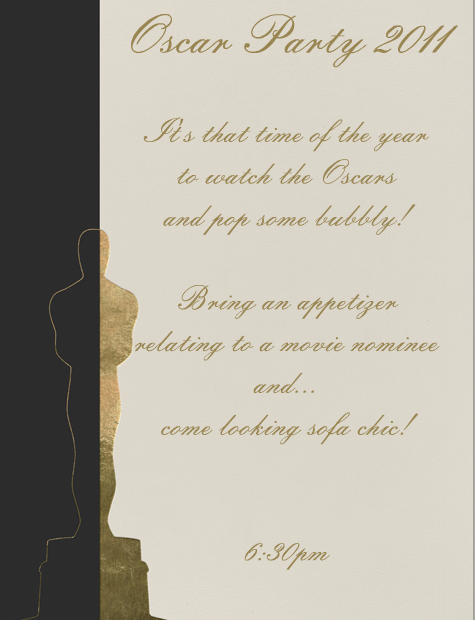 Oscar Party 2011
It's that time of the year
to watch the Oscars
and pop some bubbly!
Bring an appetizer
relating to a movie nominee
and...
come looking sofa chic!
6:30pm